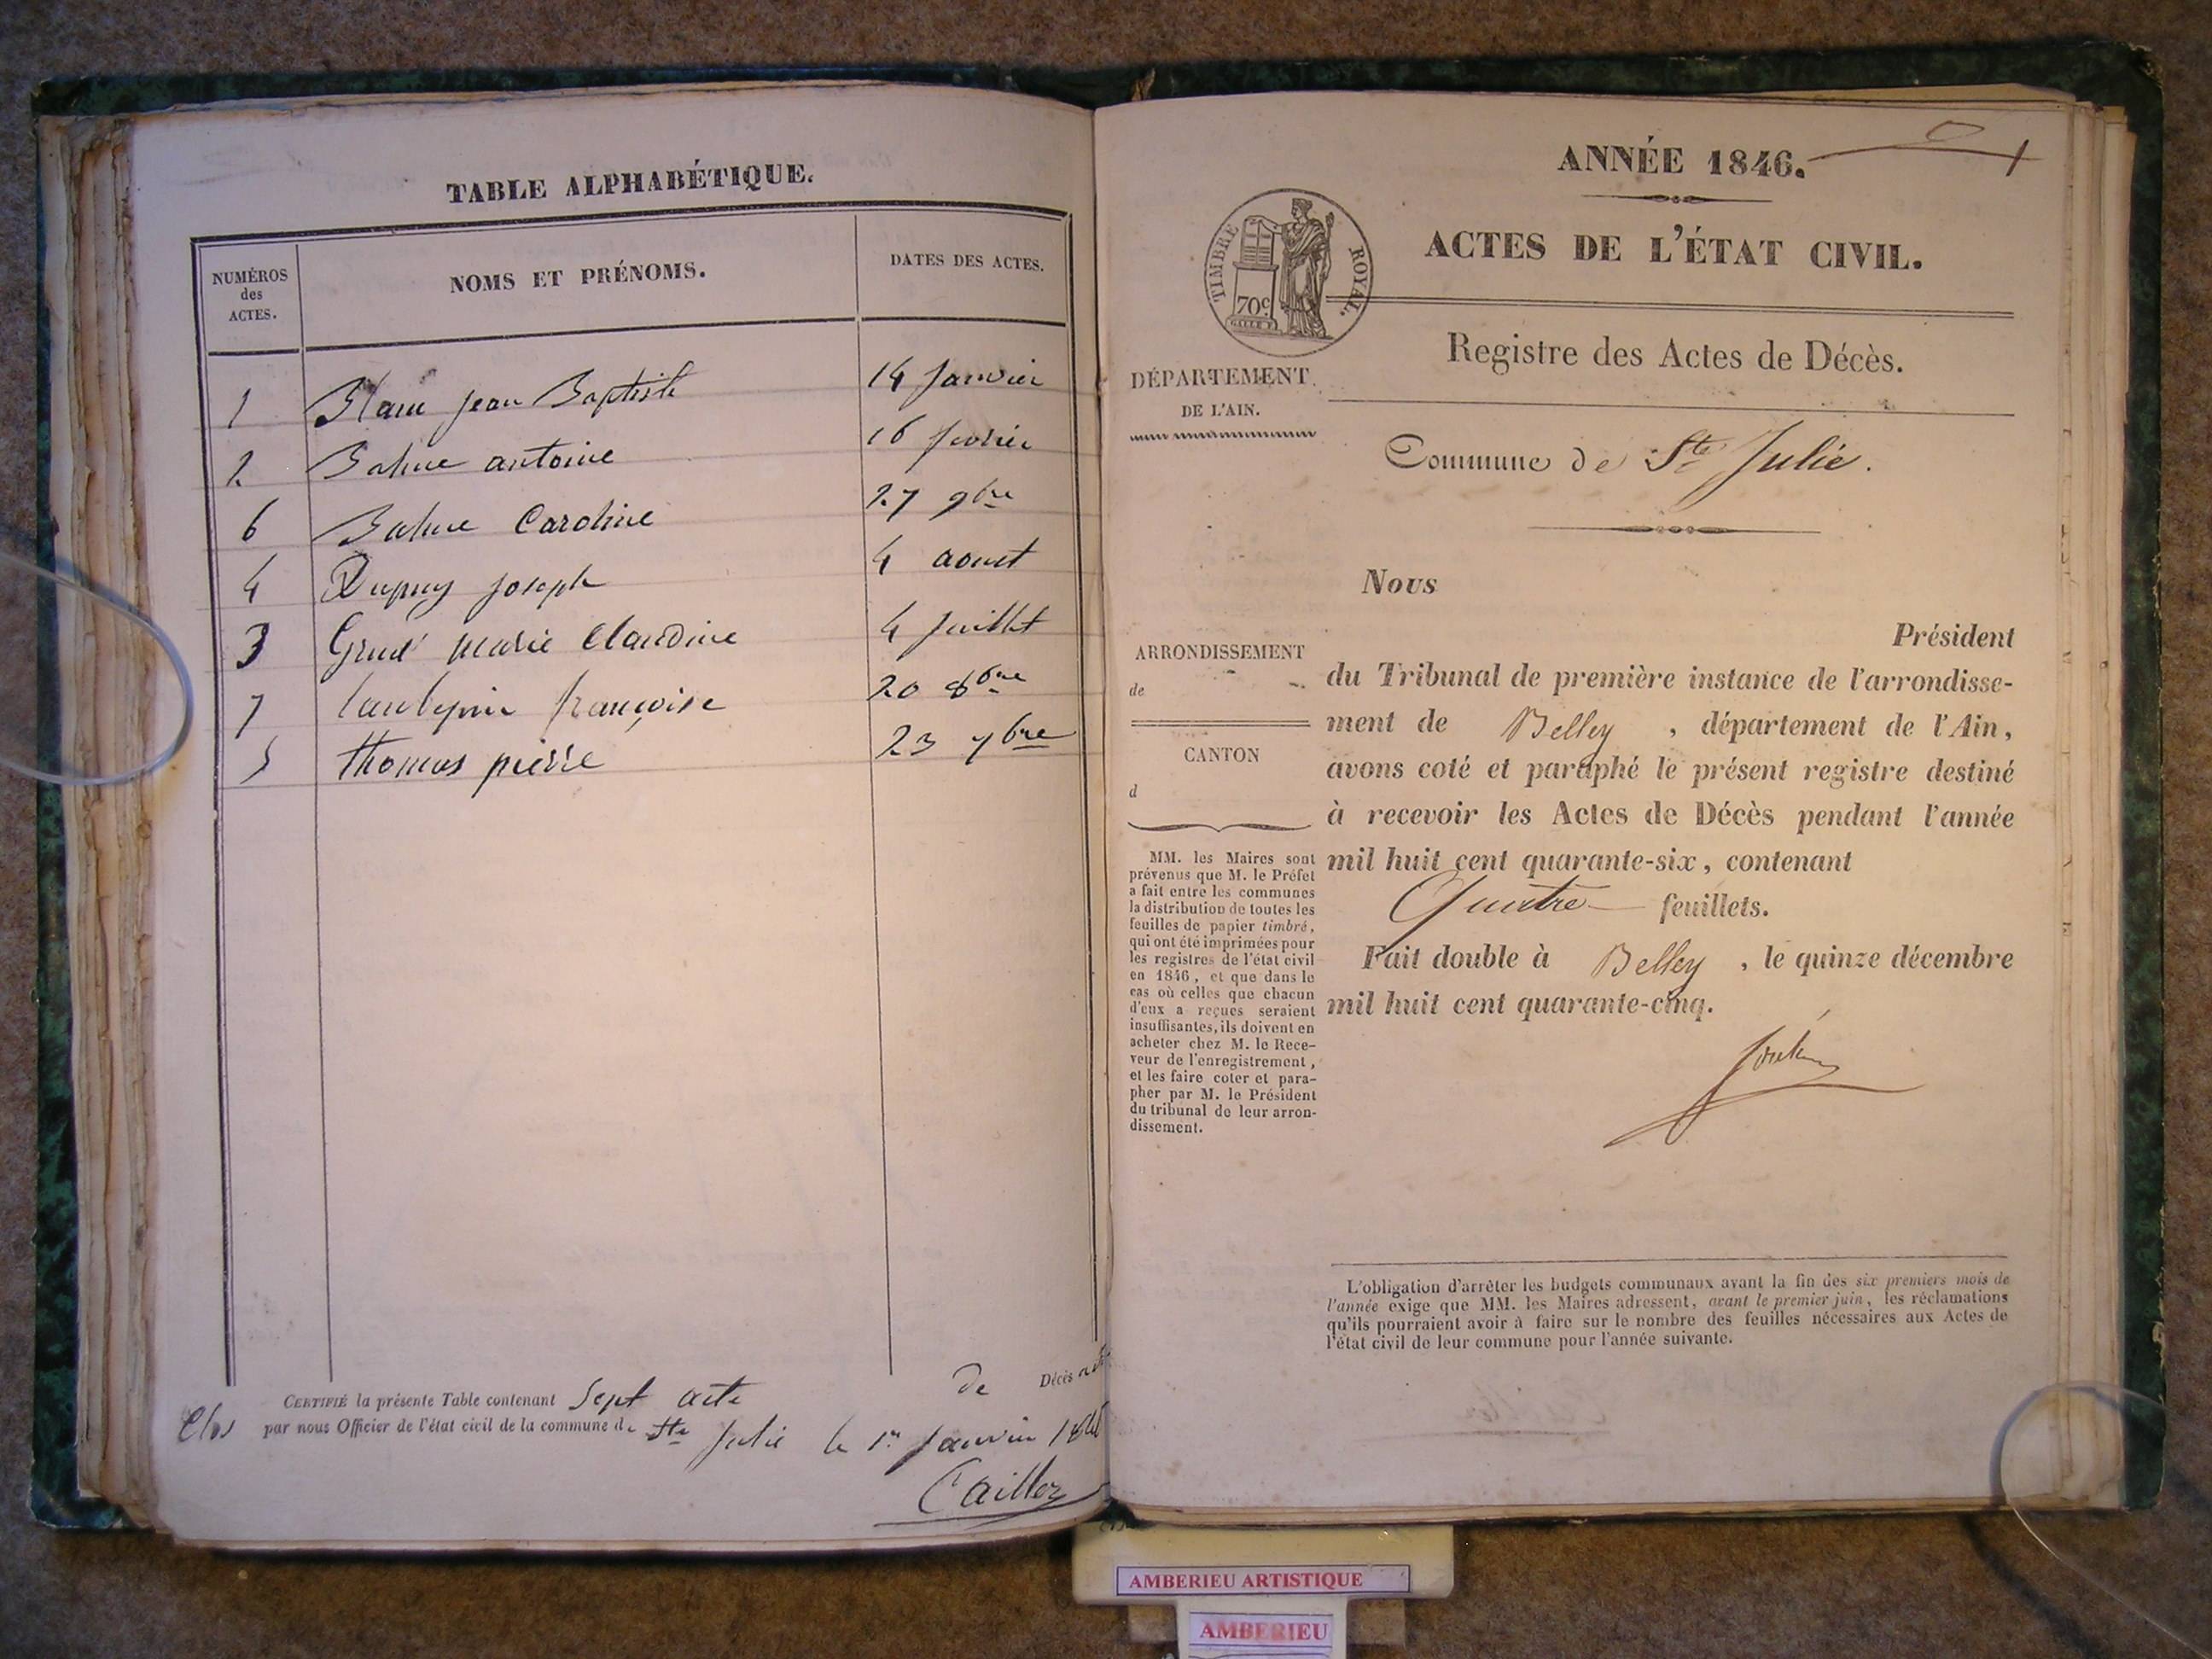 TABLE ALPHABÉTIQUE.
NUMÉROS
des
ACTES.
NOMS ET PRÉNOMS.
DATES DES ACTES.
1 Jean Baptiste 14 Janvier
2 antoine 16 fevrier
6 Caroline 27 9bre
4 Dupuy joseph 4 aout
3 marie Claudine 4 Juillet
7 françoise 20 8bre
5 thomas pierre 23 7bre
CERTIFIÉ la présente Table contenant Sept acte de Décès
Clos par nous Officier de l'état civil de la commune de Ste Julie le 1er Janvier
Cailler
ANNÉE 1846.
1
ACTES DE L'ÉTAT CIVIL.
TIMBRE ROYAL.
70c
Registre des Actes de Décès.
DÉPARTEMENT
DE L'AIN.
Commune de Ste Julie.
Nous
Président
du Tribunal de première instance de l'arrondisse-
ment de Belley , département de l'Ain,
avons coté et paraphé le présent registre destiné
à recevoir les Actes de Décès pendant l'année
mil huit cent quarante-six, contenant
Quatre feuillets.
Fait double à Belley , le quinze décembre
mil huit cent quarante-cinq.
ARRONDISSEMENT
de
CANTON
d
MM. les Maires sont
prévenus que M. le Préfet
a fait entre les communes
la distribution de toutes les
feuilles de papier timbré,
qui ont été imprimées pour
les registres de l'état civil
en 1846, et que dans le
cas où celles que chacun
d'eux a reçues seraient
insuffisantes, ils doivent en
acheter chez M. le Rece-
veur de l'enregistrement,
et les faire coter et para-
pher par M. le Président
du tribunal de leur arron-
dissement.
L'obligation d'arrêter les budgets communaux avant la fin des six premiers mois de
l'année exige que MM. les Maires adressent, avant le premier juin, les réclamations
qu'ils pourraient avoir à faire sur le nombre des feuilles nécessaires aux Actes de
l'état civil de leur commune pour l'année suivante.
AMBERIEU ARTISTIQUE
AMBERIEU